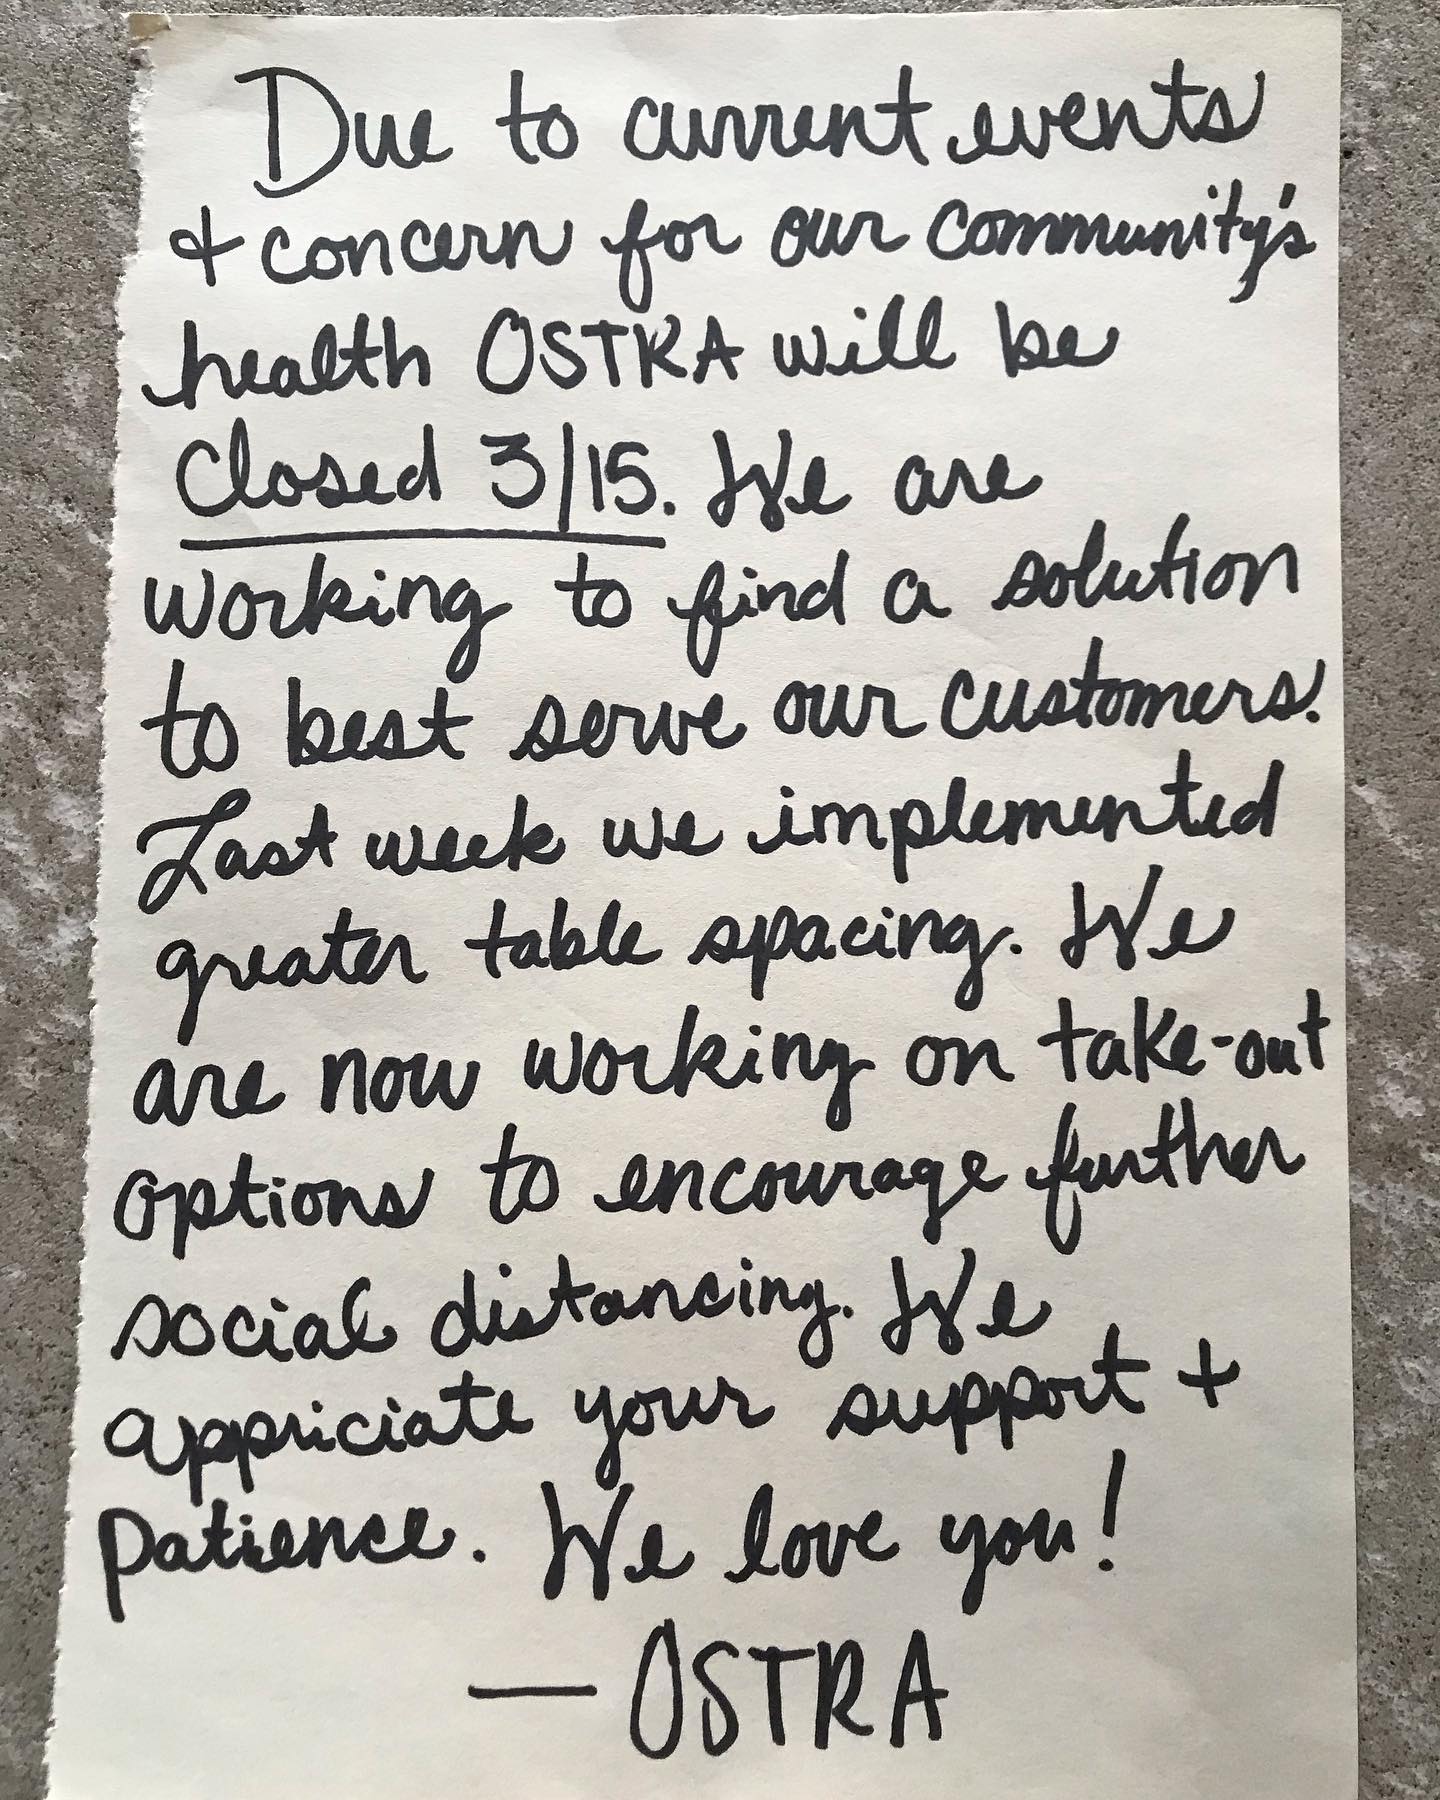 Due to current events
+ concern for our community's
health OSTRA will be
closed 3/15. We are
working to find a solution
to best serve our customers.
Last week we implemented
greater table spacing. We
are now working on take-out
options to encourage further
social distancing. We
appriciate your support +
patience. We love you!
— OSTRA